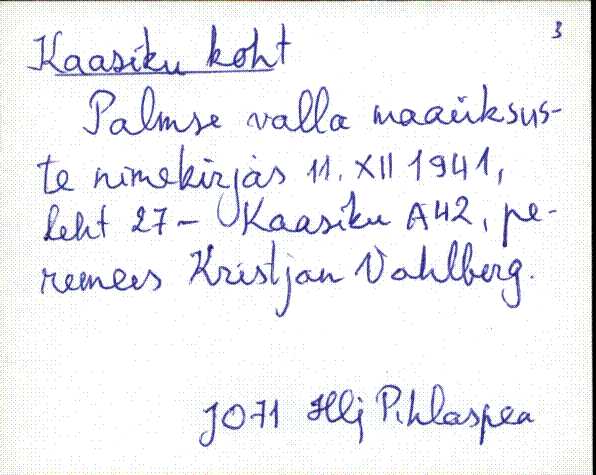 3
Kaasiku koht
Palmse valla maaüksus-
te nimekirjas 11. XII 1941,
leht 27 - Kaasiku A42, pe-
remees Kristjan Vahlberg.
JO71 Hlj Pihlaspea